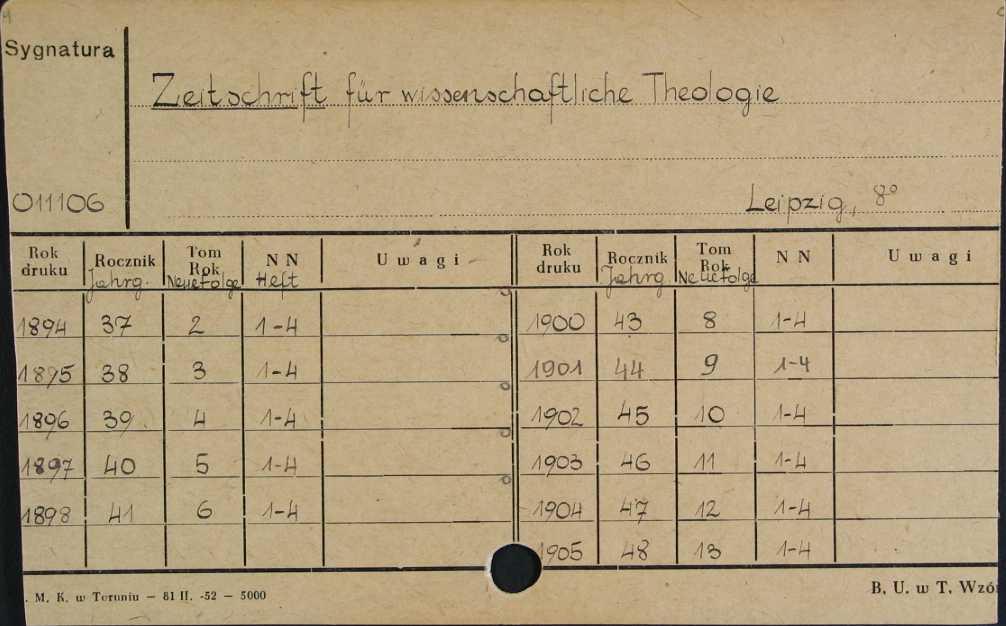 Sygnatura
Zeitschrift für wissenschaftliche Theologie
011106
Leipzig, 8°
Rok druku Rocznik Tom Rok N N U w a g i Rok druku Rocznik Tom Rok N N U w a g i
Jahrg. Neue Folge Heft Jahrg Neue Folge
1894 37 2 1-4 1900 43 8 1-4
1895 38 3 1-4 1901 44 9 1-4
1896 39 4 1-4 1902 45 10 1-4
1897 40 5 1-4 1903 46 11 1-4
1898 41 6 1-4 1904 47 12 1-4
1905 48 13 1-4
. M. K. w Toruniu — 81 II. -52 — 5000
B. U. w T. Wzó